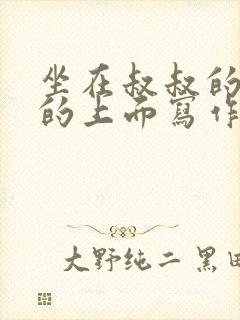 坐在叔叔的
的上而寫作
大野纯二 黑田